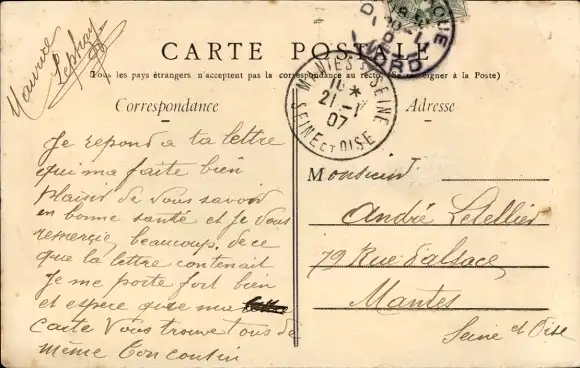 Maurice
CARTE POSTALE
Tous les pays étrangers n'acceptent pas la correspondance au recto. (Se renseigner à la Poste)
Correspondance
Adresse
MANTES S SEINE
10 *
21 - 1
07
SEINE ET OISE
NORD
Je repond a ta lettre
qui ma faite bien
plaisir de vous savoir
en bonne santé et Je vous
remercie beaucoup. de ce
que la lettre contenait
Je me porte fort bien
et espere que ma
carte vous trouve tous de
même Ton cousin
Monsieur
André Letellier
79 Rue d'alsace
Mantes
Seine et Oise